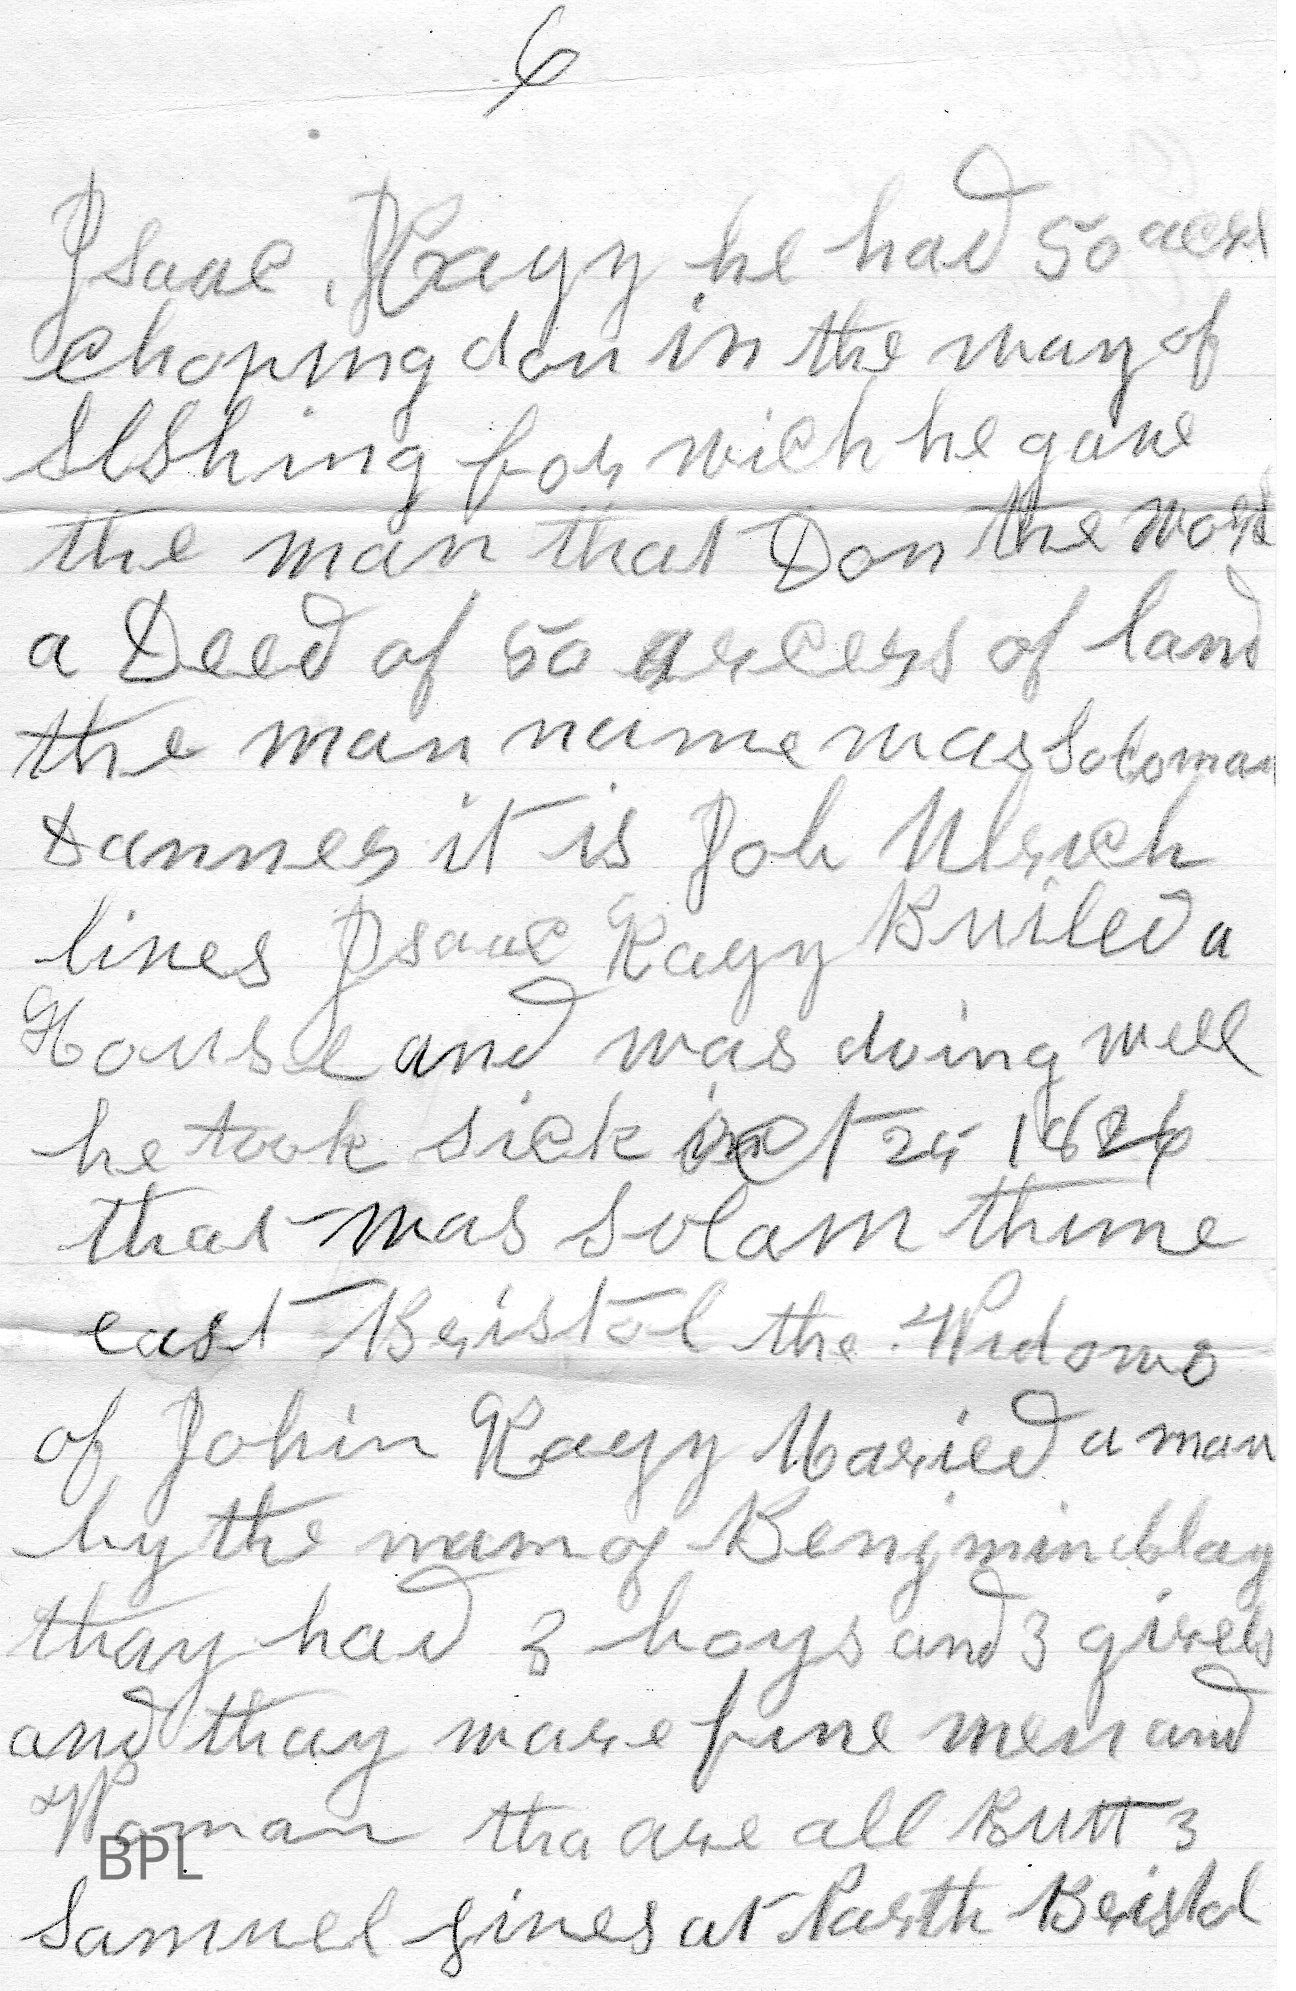 6
Isaac Kagy he had 50 acers
choping don in the way of
slshing for wich he gave
the man that Don the work
a Deed of 50 arcers of land
the man name was Soloman
Danner it is Joh Ulrich
lines Isaac Kagy Builed a
House and was doing well
he took sick oct 25 1826
that was solam thime
east Bristol the Widow
of Johin Kagy Maried a man
by the nam of Benjmin
thay had 3 boys and 3 girels
and thay ware fine men and
Woman tha are all Butt 3
Samuel lines at North Bristol
BPL